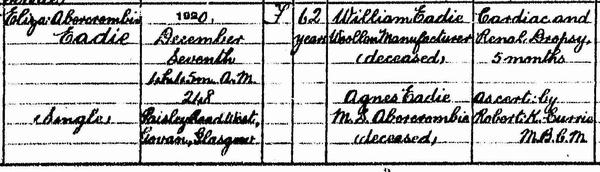 Eliza Abercrombie
Eadie
(Single)
1920,
December
Seventh
1h. 45m. A.M.
248
Paisley Road West,
Govan, Glasgow
F
62
years
William Eadie
Woollen Manufacturer
(deceased)
Agnes Eadie
M.S. Abercrombie
(deceased)
Cardiac and
Renal Dropsy,
5 months
Ascert. by
Robert K. Currie
M.B.C.M